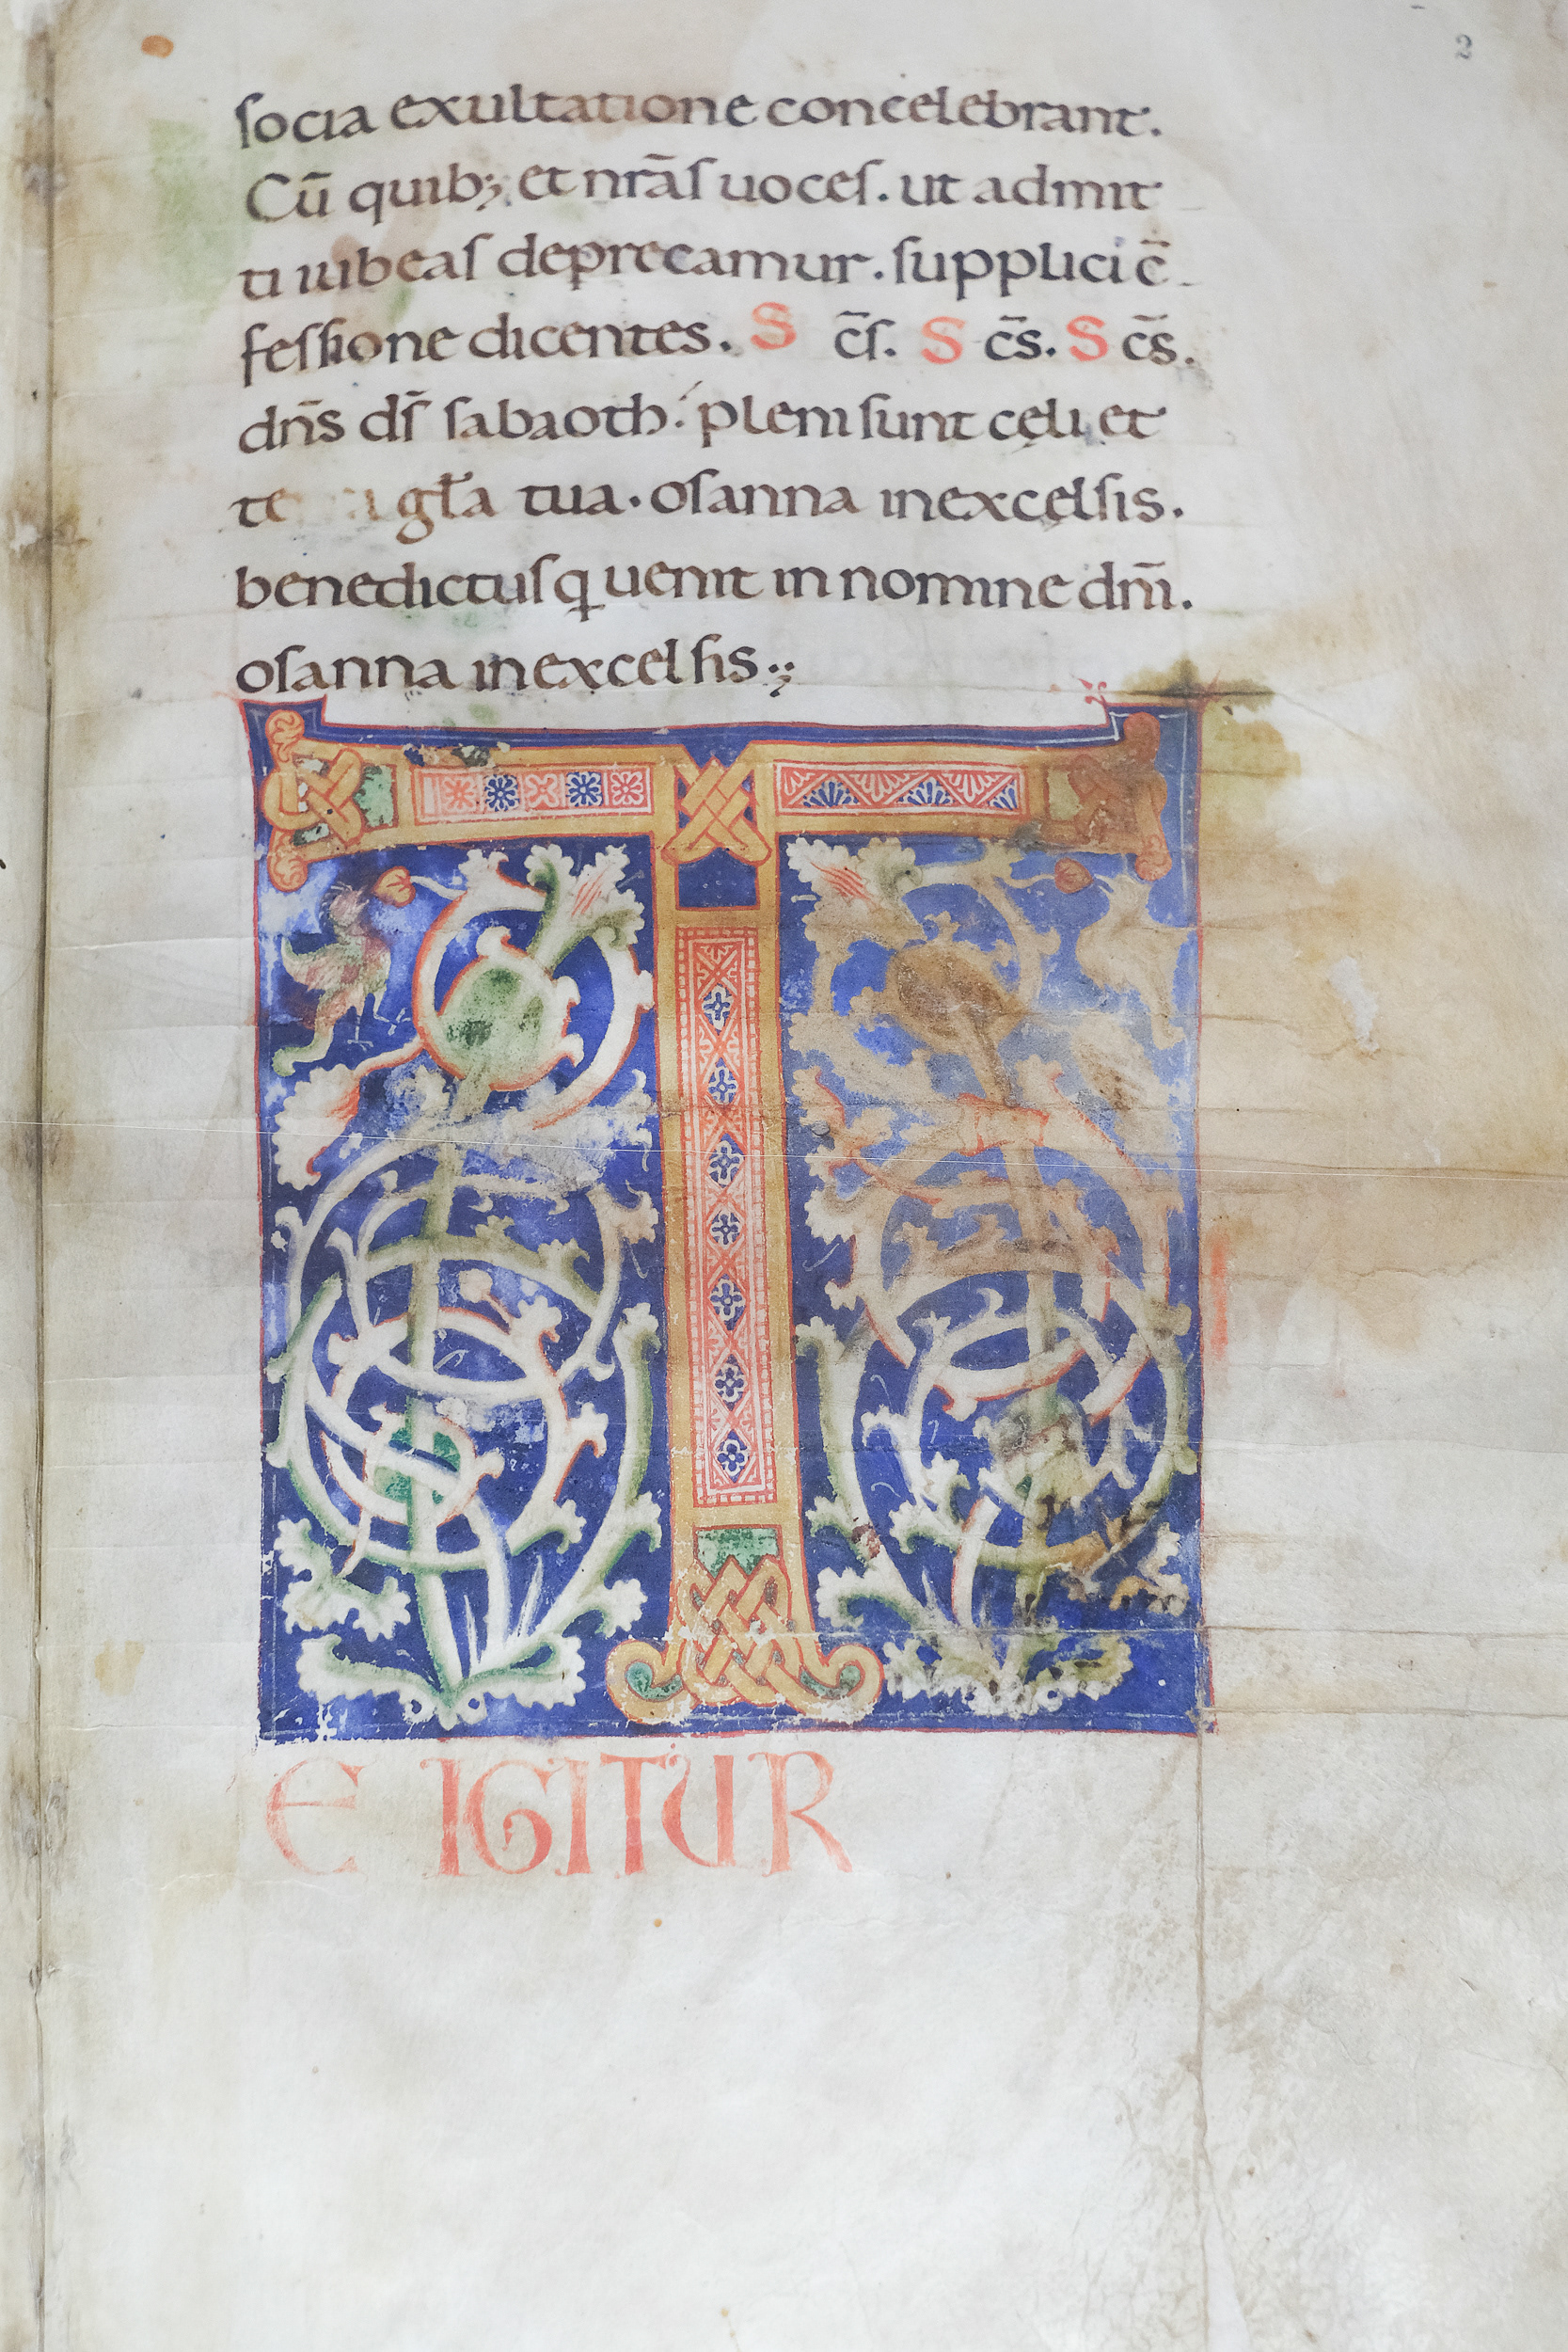 2
socia exultatione concelebrant.
Cū quib; et nrās uoces. ut admit
ti iubeas deprecamur. supplici c̄
fessione dicentes. S c̄s. S c̄s. S c̄s.
dn̄s ds̄ sabaoth. pleni sunt cęli et
gła tua. osanna in excelsis.
benedictus q uenit in nomine dn̄i.
osanna in excelsis.
T
E IGITUR